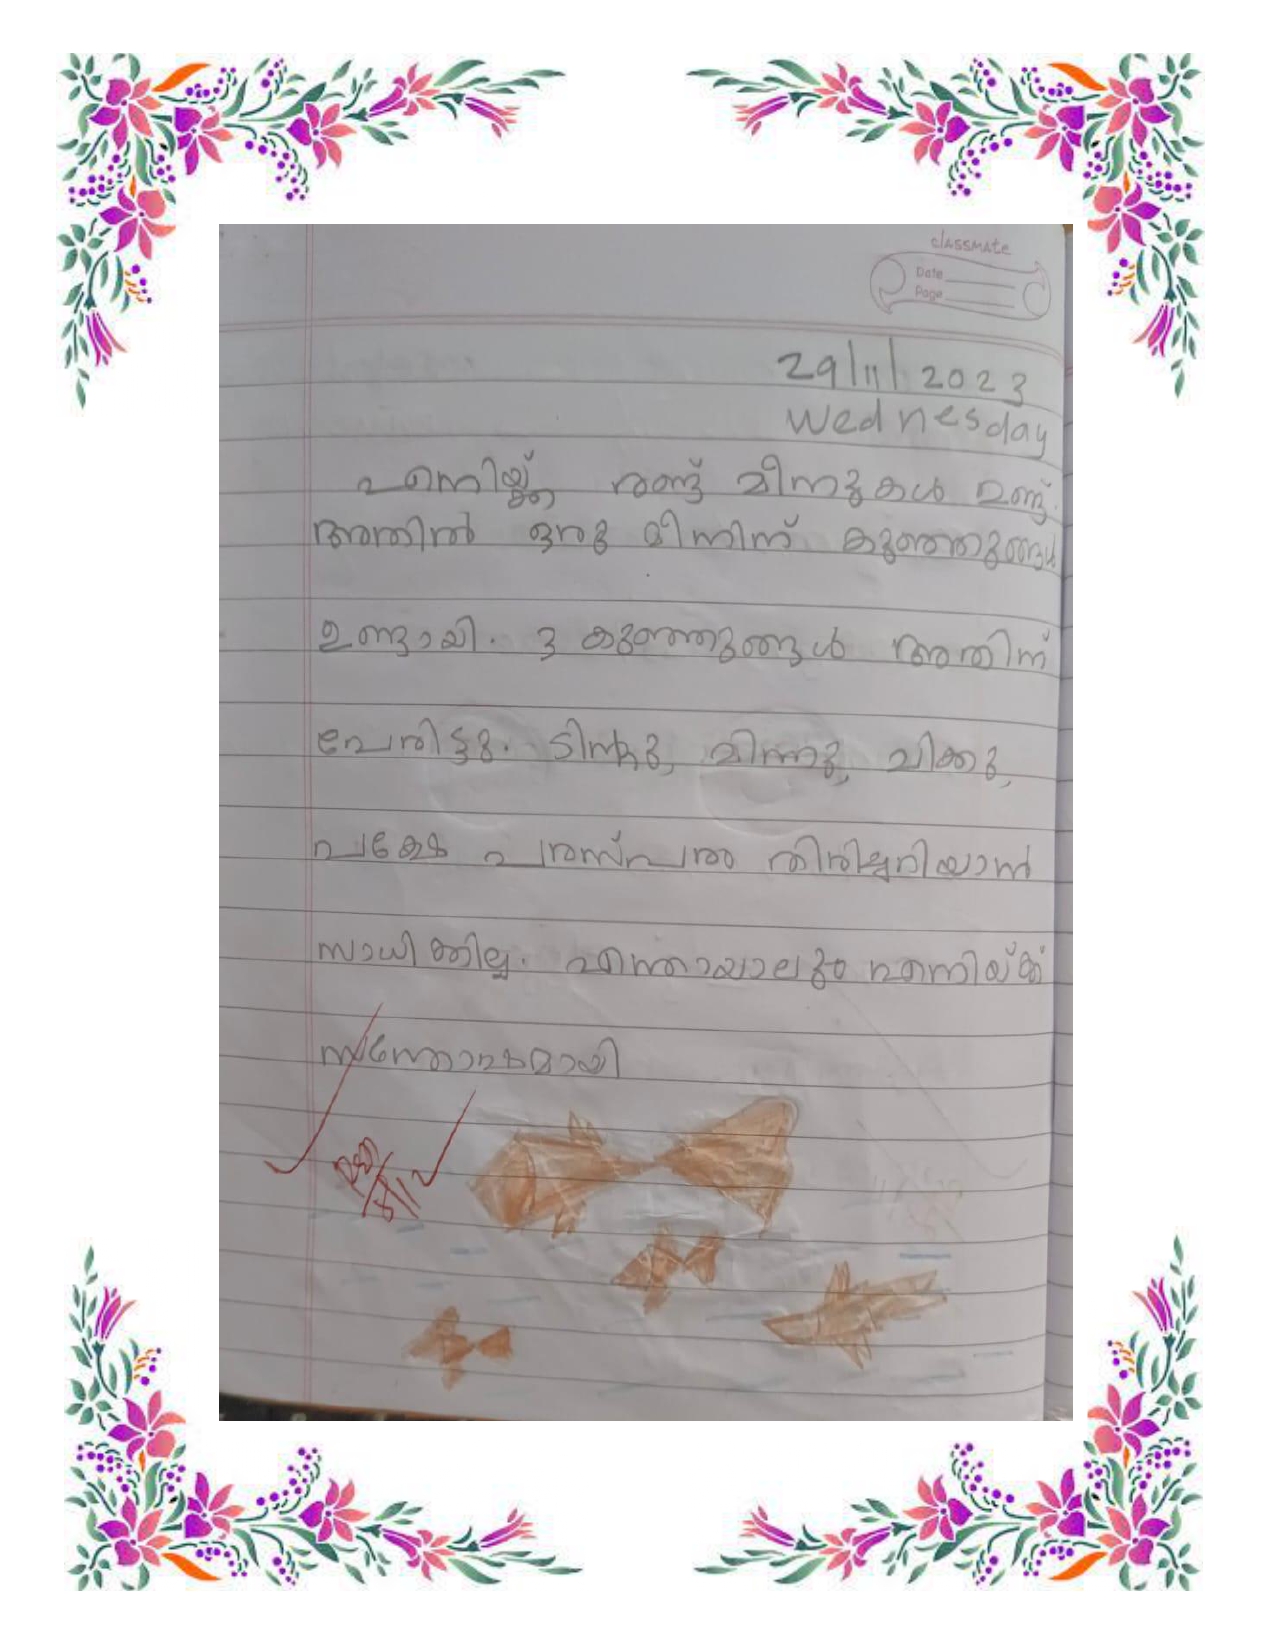 classmate
Date
Page
29/11/2023
Wednesday
എനിയ്ക്ക് രണ്ട് മീനുകൾ ഉണ്ട്.
അതിൽ ഒരു മീനിന് കുഞ്ഞുങ്ങൾ
ഉണ്ടായി. 3 കുഞ്ഞുങ്ങൾ അതിന്
പേരിട്ടു. ടിന്റു, മിന്നു, ചിക്കു,
പക്ഷേ പരസ്പരം തിരിച്ചറിയാൻ
സാധിക്കില്ല. എന്തായാലും എനിയ്ക്ക്
സന്തോഷമായി